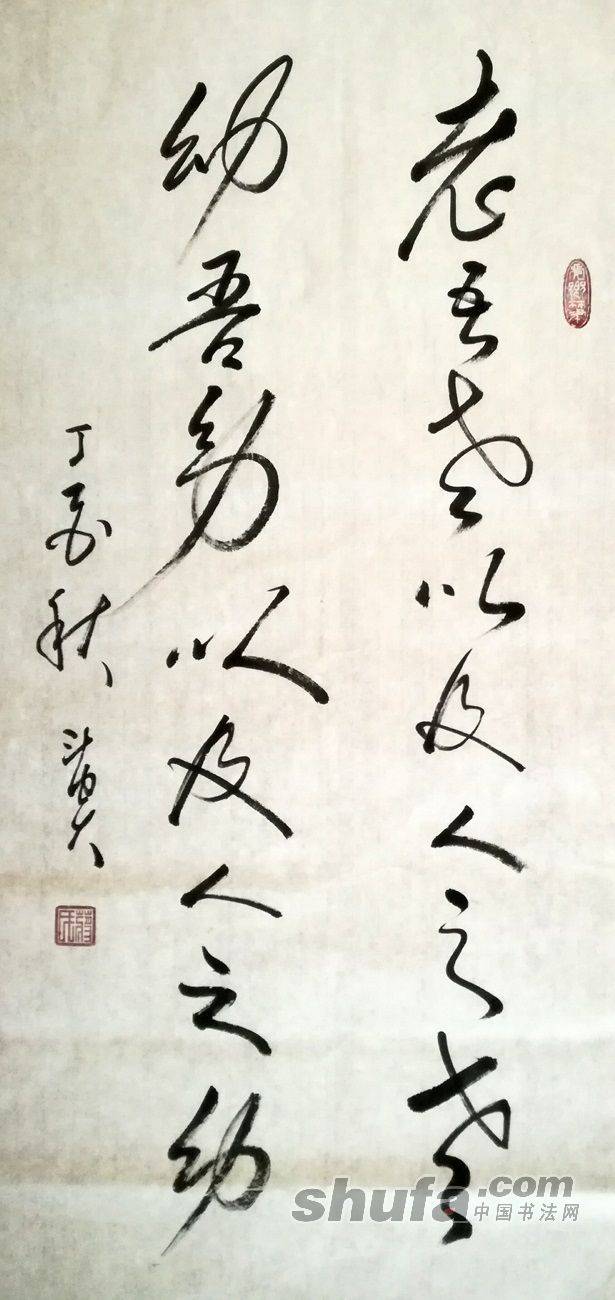 老吾老以及人之老
幼吾幼以及人之幼
丁酉秋
shufa.com
中国书法网